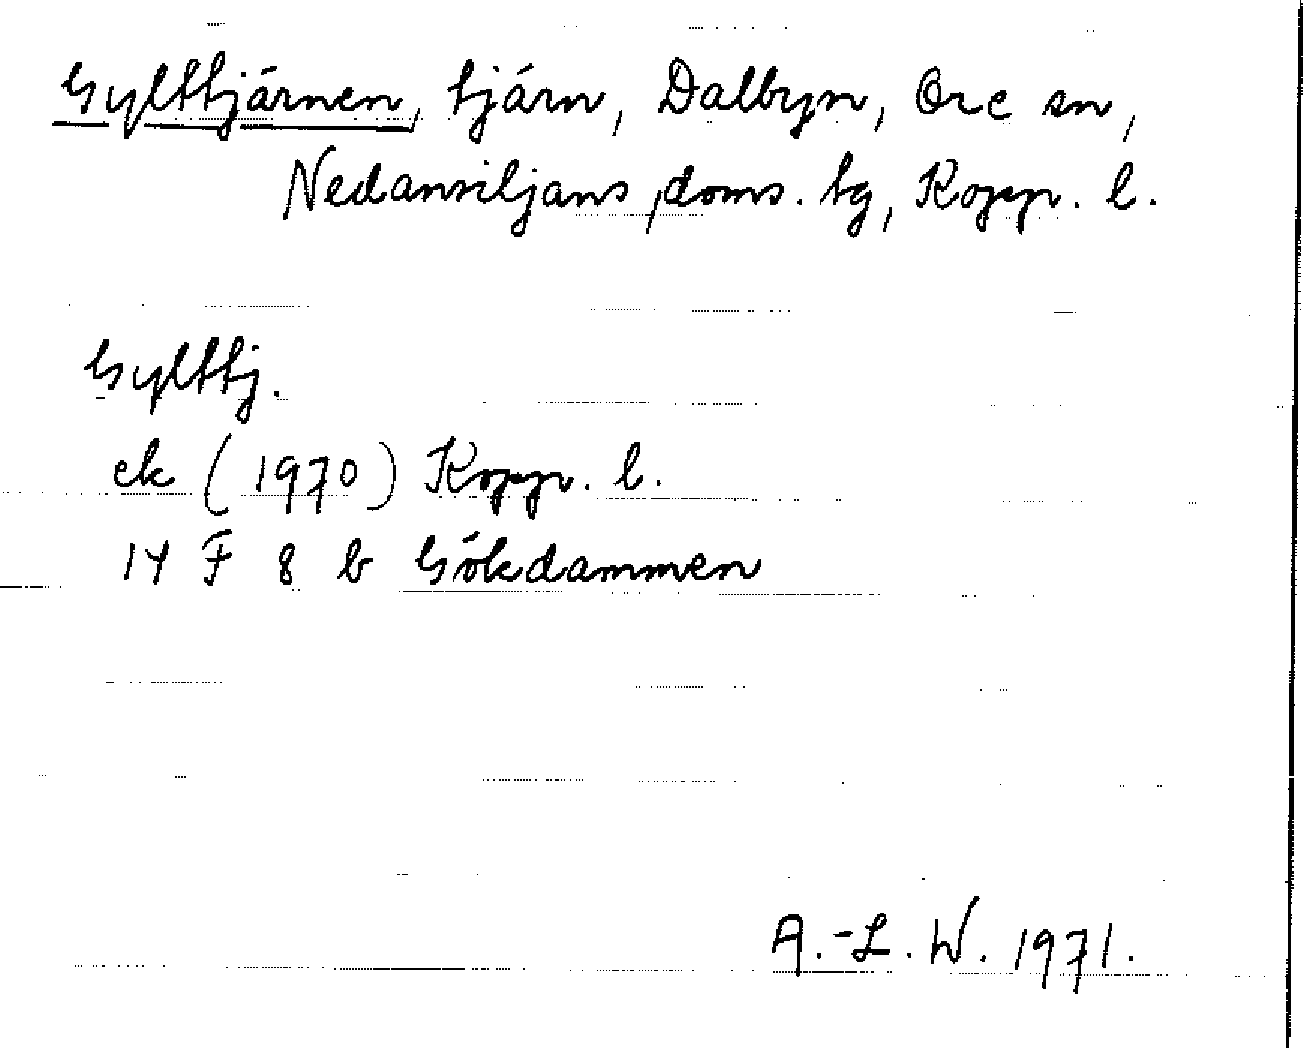 Gylttjärnen, tjärn, Dalbyn, Ore sn,
Nedansiljans doms. tg, Kopp. l.
Gylttj.
ek (1970) Kopp. l.
14 F 8 b Gökdammen
A.-L. W. 1971.